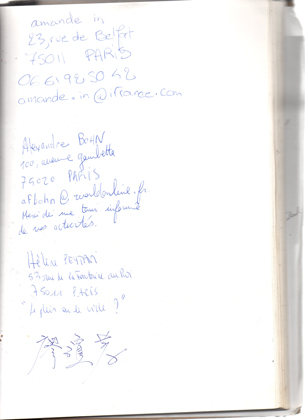 amande in
23, rue de Belfort
75011 PARIS
amande.in@ifrance.com
Alexandre BOHN
100, avenue gambetta
75020 PARIS
afbohn@worldonline.fr
Merci de me tenir informé
de vos activités.
Hélène
rue de la Fontaine au Roi
75011 PARIS
"le plein ou le vide ?"